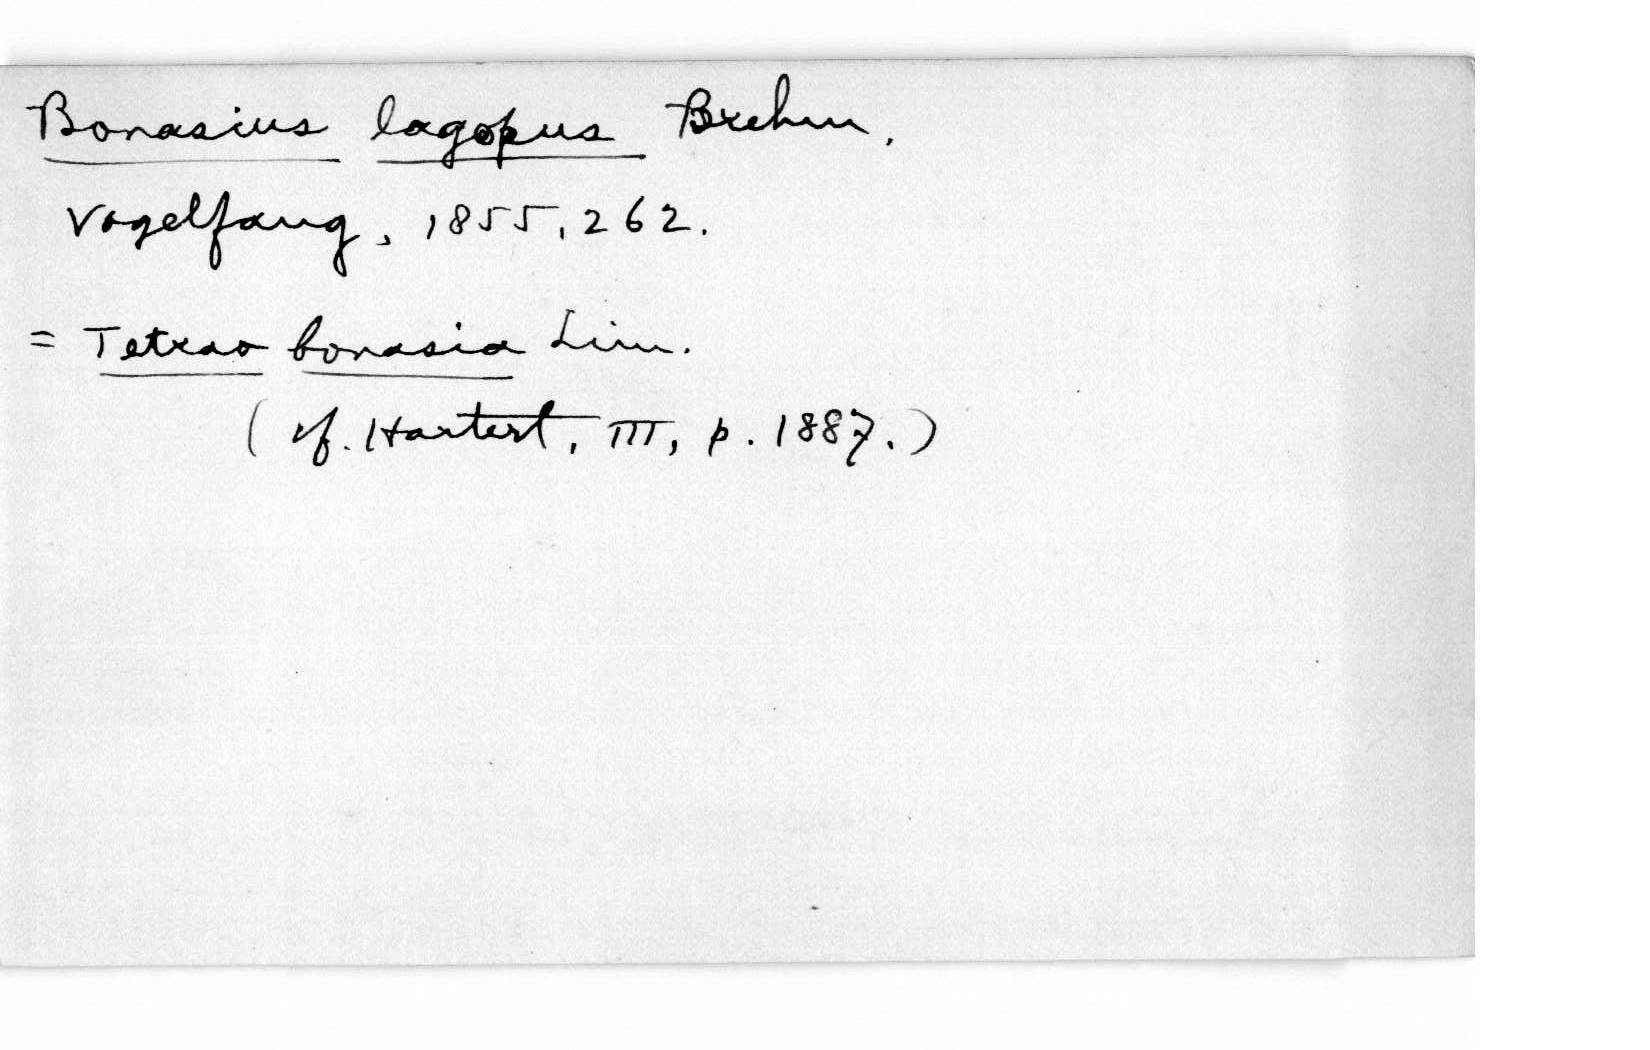 Bonasius lagopus Brehm,
Vogelfang, 1855, 262.
= Tetrao bonasia Linn.
(cf. Hartert, III, p. 1887.)